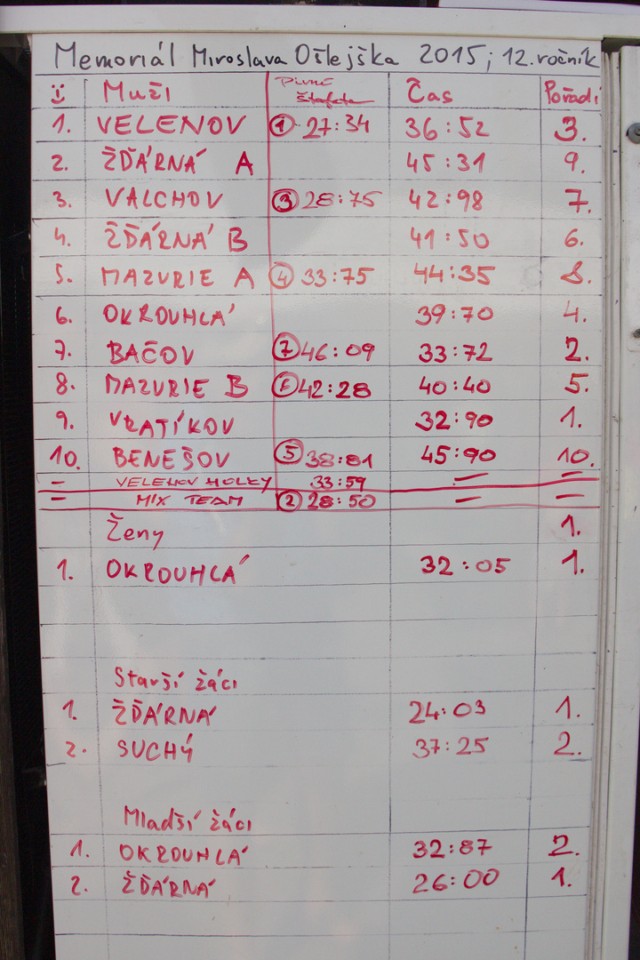 Memoriál Miroslava Ošlejška 2015; 12. ročník
Muži Pivní štafeta Čas Pořadí
1. VELENOV 1 27:34 36:52 3.
2. ŽĎÁRNÁ A 45:31 9.
3. VALCHOV 3 28:75 42:98 7.
4. ŽĎÁRNÁ B 41:50 6.
5. MAZURIE A 4 33:75 44:35 8.
6. OKROUHLÁ 39:70 4.
7. BAČOV 7 46:09 33:72 2.
8. MAZURIE B 6 42:28 40:40 5.
9. VRATÍKOV 32:90 1.
10. BENEŠOV 5 38:81 45:90 10.
– VELENOV HOLKY 33:59 – –
– MIX TEAM 2 28:50 – –
Ženy 1.
1. OKROUHLÁ 32:05 1.
Starší žáci
1. ŽĎÁRNÁ 24:03 1.
2. SUCHÝ 37:25 2.
Mladší žáci
1. OKROUHLÁ 32:87 2.
2. ŽĎÁRNÁ 26:00 1.